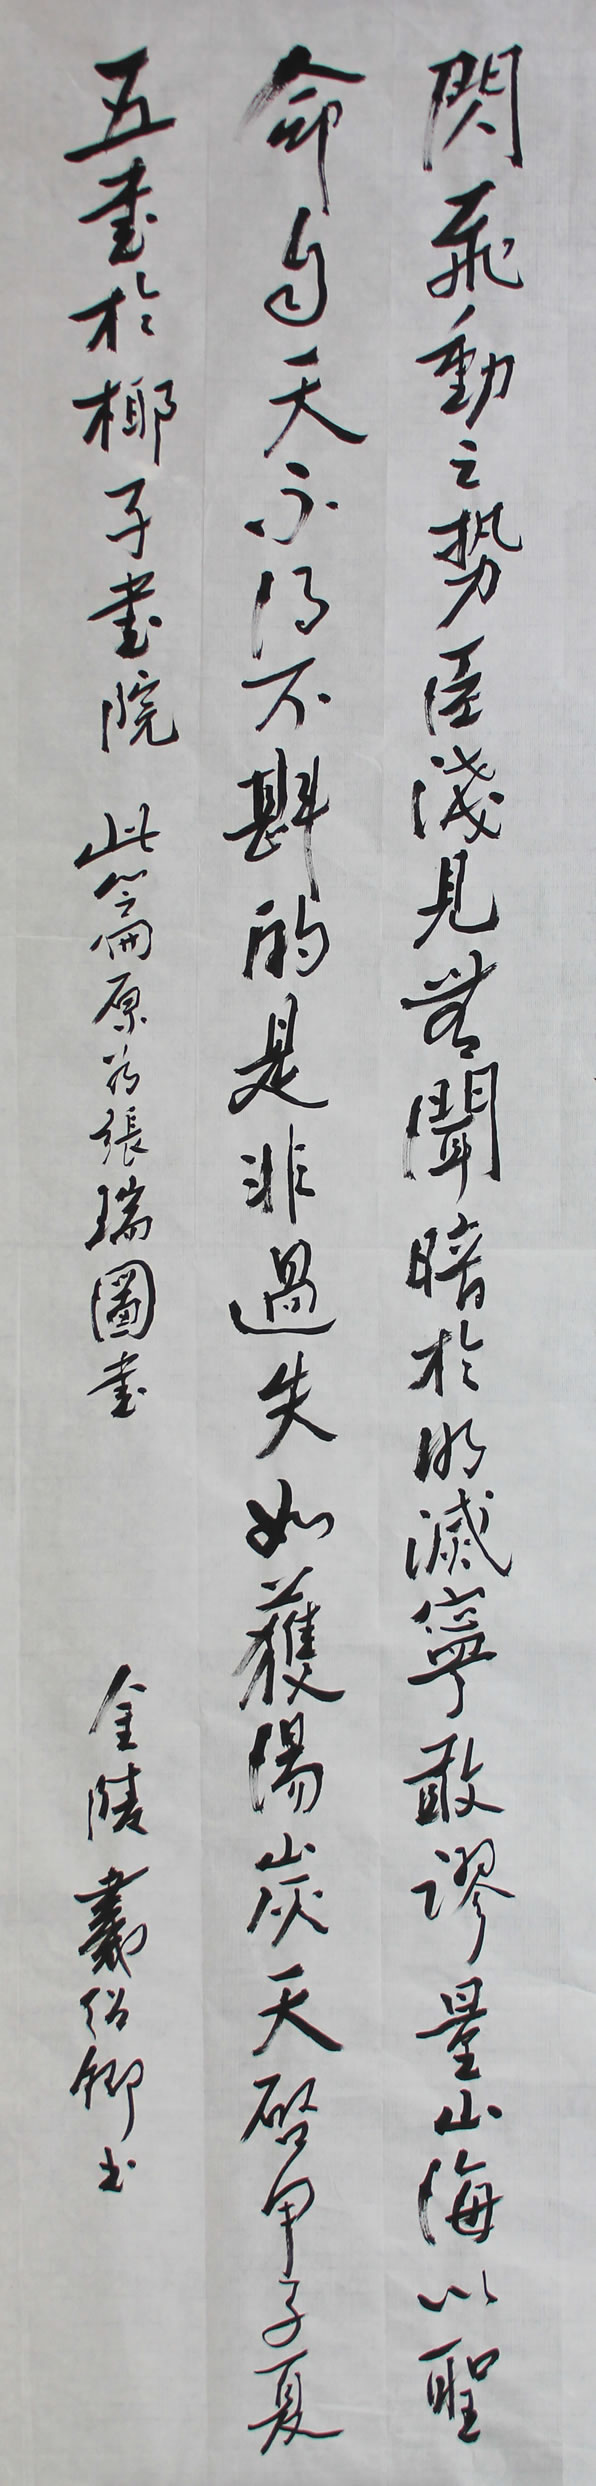 閃飛動之勢臣淺見無聞暗於明滅寧敢謬量山海以聖
命自天不得不斟的是非過失如獲湯炭天啓甲子夏
五書於椰子書院 此篇原為張瑞圖書 金陵戴紹卿书